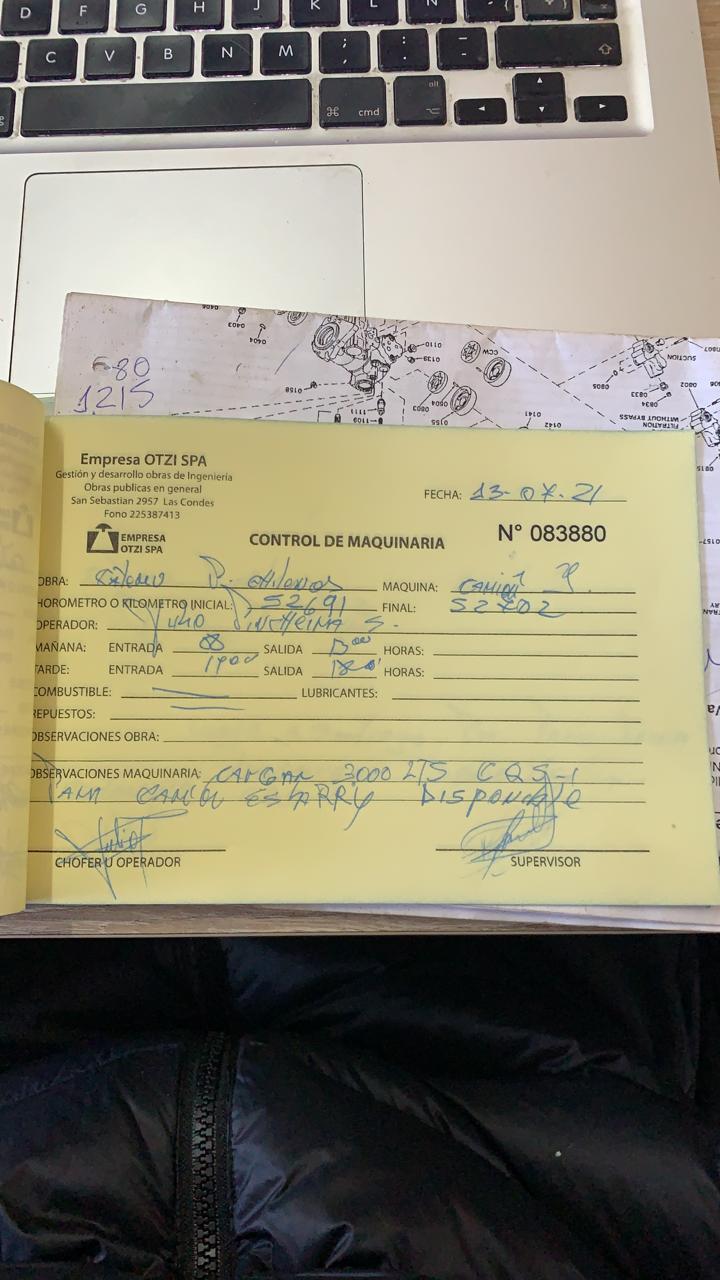 D F G H J K L N
C V B N M ; , : . _ -
⌘ cmd alt ⌥
80
1215
0403
0404
0158
1111
1109
0110
0139
CCW
0803
0804
0155
0141
0142
0805
SUCTION
0833
0834
0802
FILTRATION
WITHOUT BYPASS
Empresa OTZI SPA
Gestión y desarrollo obras de Ingeniería
Obras publicas en general
San Sebastian 2957 Las Condes
Fono 225387413
FECHA: 13-07-21
EMPRESA
OTZI SPA
CONTROL DE MAQUINARIA
N° 083880
OBRA: MAQUINA: CAMION
HOROMETRO O KILOMETRO INICIAL: 52691 FINAL: 52702
OPERADOR: S.
MAÑANA: ENTRADA 08 SALIDA 13°° HORAS:
TARDE: ENTRADA 14°° SALIDA 18°° HORAS:
COMBUSTIBLE: LUBRICANTES:
REPUESTOS:
OBSERVACIONES OBRA:
OBSERVACIONES MAQUINARIA: CARGAR 3000 LTS CQS-1
PARA CAMION ESLARRY DISPONIBLE
CHOFER U OPERADOR
SUPERVISOR